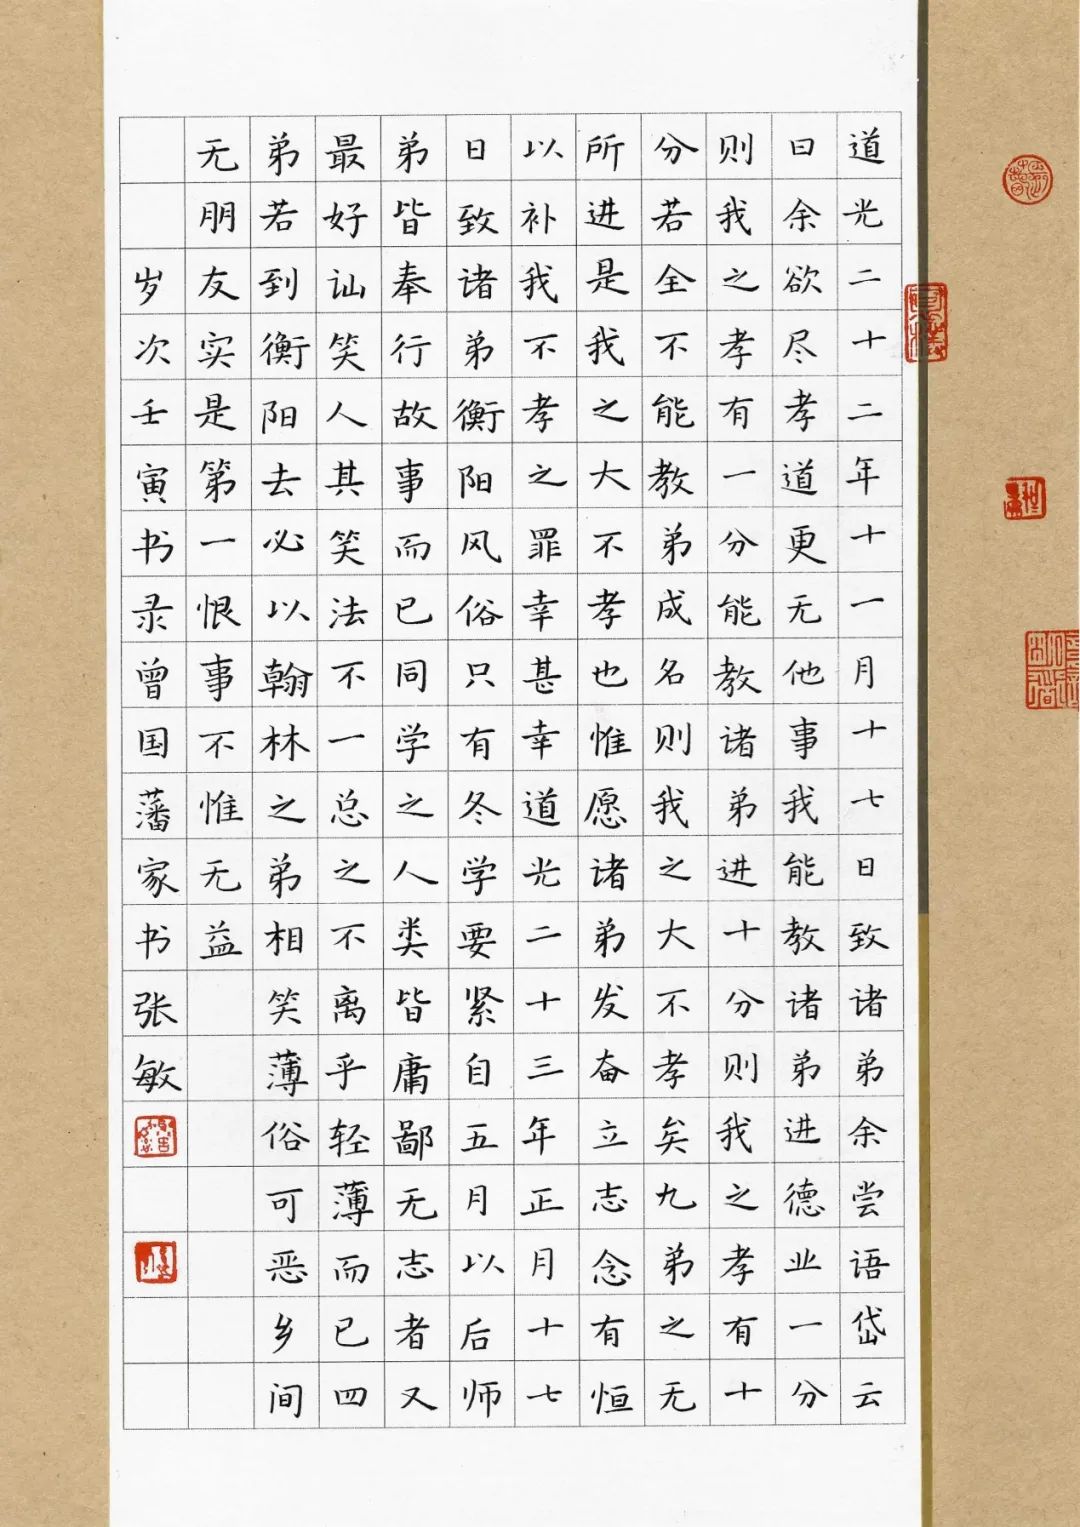 道光二十二年十一月十七日致诸弟余尝语岱云
曰余欲尽孝道更无他事我能教诸弟进德业一分
则我之孝有一分能教诸弟进十分则我之孝有十
分若全不能教弟成名则我之大不孝矣九弟之无
所进是我之大不孝也惟愿诸弟发奋立志念有恒
以补我不孝之罪幸甚幸道光二十三年正月十七
日致诸弟衡阳风俗只有冬学要紧自五月以后师
弟皆奉行故事而已同学之人类皆庸鄙无志者又
最好讪笑人其笑法不一总之不离乎轻薄而已四
弟若到衡阳去必以翰林之弟相笑薄俗可恶乡间
无朋友实是第一恨事不惟无益
岁次壬寅书录曾国藩家书张敏